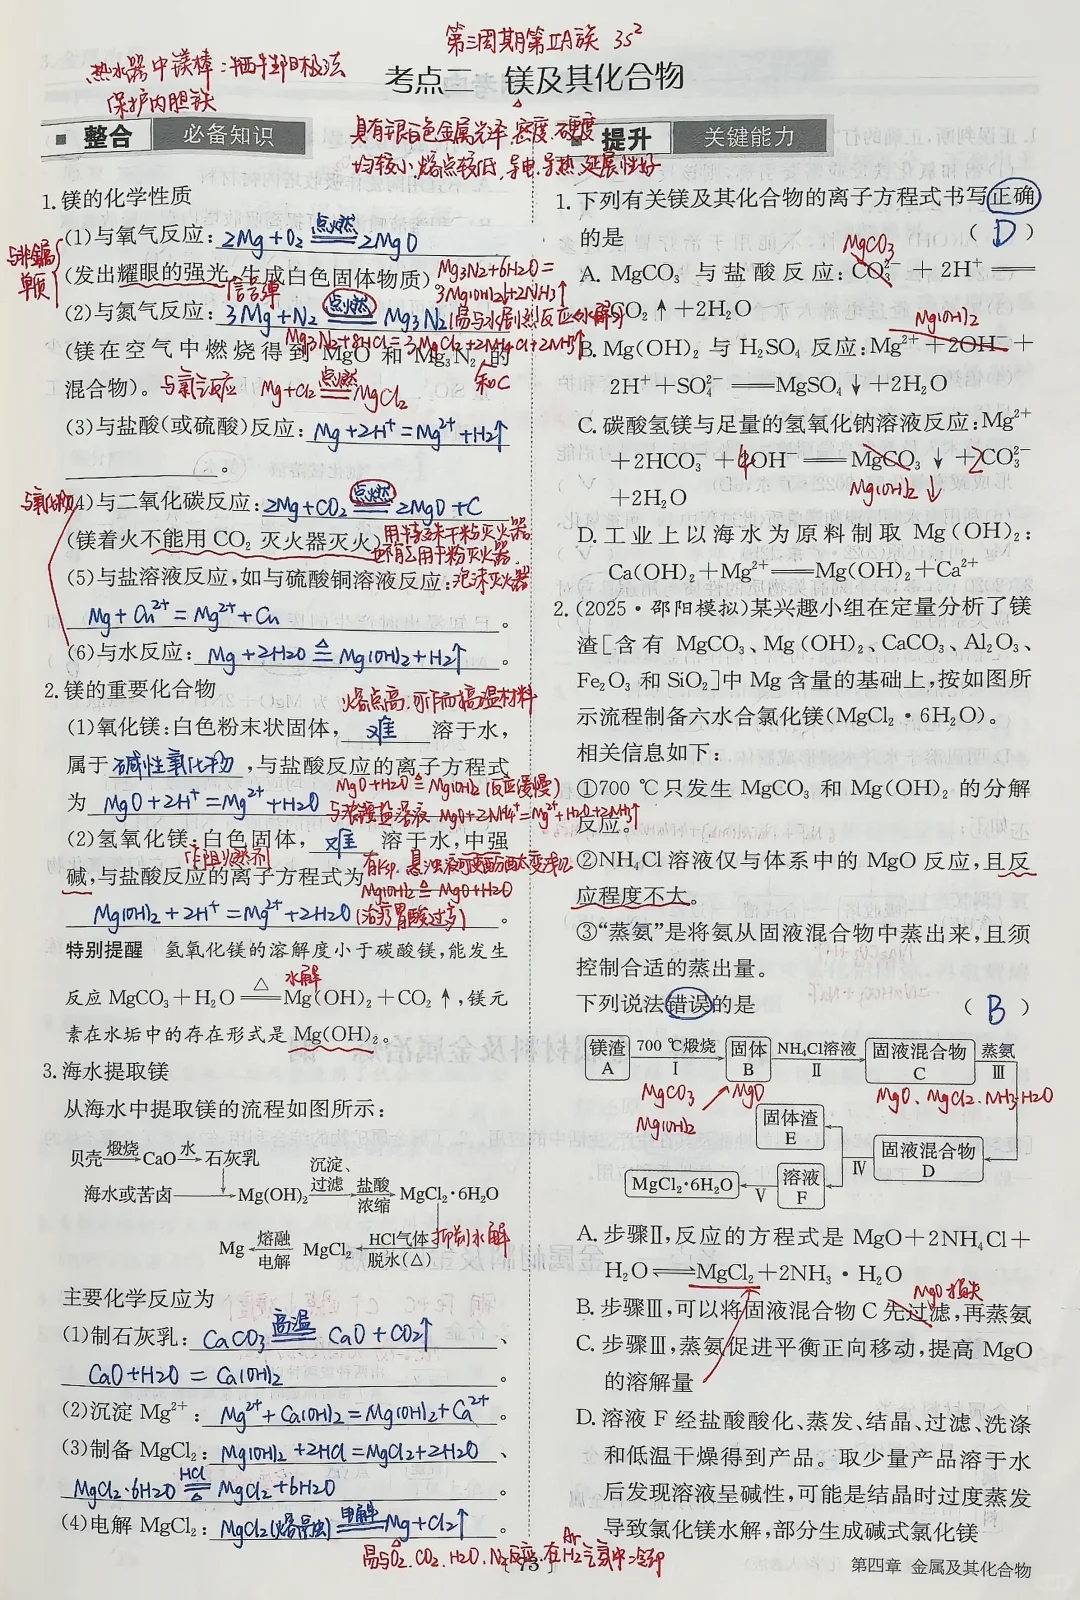 第三周期第ⅡA族 3s²
热水器中镁棒：牺牲阳极法
保护内胆铁
考点二 镁及其化合物
具有银白色金属光泽,密度、硬度
均较小,熔点较低,导电、导热、延展性好
整合 必备知识
1.镁的化学性质
与非金属单质
(1)与氧气反应: 2Mg+O₂ 点燃══ 2MgO
(发出耀眼的强光,生成白色固体物质)
信号弹
Mg₃N₂+6H₂O=
3Mg(OH)₂↓+2NH₃↑
(2)与氮气反应: 3Mg+N₂ 点燃══ Mg₃N₂ (易与水剧烈反应(水解))
Mg₃N₂+8HCl=3MgCl₂+2NH₄Cl
(镁在空气中燃烧得到 MgO 和 Mg₃N₂ 的
混合物)。 与氯气反应 Mg+Cl₂ 点燃══ MgCl₂
和C
(3)与盐酸(或硫酸)反应: Mg+2H⁺=Mg²⁺+H₂↑
。
与氧化物
(4)与二氧化碳反应: 2Mg+CO₂ 点燃══ 2MgO+C
(镁着火不能用 CO₂ 灭火器灭火) 用特殊干粉灭火器
(5)与盐溶液反应,如与硫酸铜溶液反应: 泡沫灭火器
Mg+Cu²⁺=Mg²⁺+Cu 。
(6)与水反应: Mg+2H₂O △══ Mg(OH)₂+H₂↑ 。
2.镁的重要化合物
熔点高,可作耐高温材料
(1)氧化镁:白色粉末状固体, 难 溶于水,
属于 碱性氧化物 ,与盐酸反应的离子方程式
MgO+H₂O △══ Mg(OH)₂ (反应缓慢)
为 MgO+2H⁺=Mg²⁺+H₂O 。
与浓铵盐溶液 MgO+2NH₄⁺=Mg²⁺+H₂O+2NH₃↑
(2)氢氧化镁:白色固体, 难 溶于水,中强
作阻燃剂
碱,与盐酸反应的离子方程式为
Mg(OH)₂ △══ MgO+H₂O
Mg(OH)₂+2H⁺=Mg²⁺+2H₂O (治疗胃酸过多) 。
特别提醒 氢氧化镁的溶解度小于碳酸镁,能发生
水解
反应 MgCO₃+H₂O △══ Mg(OH)₂+CO₂↑,镁元
素在水垢中的存在形式是 Mg(OH)₂。
3.海水提取镁
从海水中提取镁的流程如图所示:
贝壳 煅烧→ CaO 水→ 石灰乳
海水或苦卤 → Mg(OH)₂ 沉淀、过滤→ 盐酸 浓缩→ MgCl₂·6H₂O
抑制水解
Mg ←熔融 电解 MgCl₂ ←HCl气体 脱水(△)
主要化学反应为
(1)制石灰乳: CaCO₃ 高温══ CaO+CO₂↑ 、
CaO+H₂O=Ca(OH)₂ 。
(2)沉淀 Mg²⁺: Mg²⁺+Ca(OH)₂=Mg(OH)₂+Ca²⁺ 。
(3)制备 MgCl₂: Mg(OH)₂+2HCl=MgCl₂+2H₂O 、
MgCl₂·6H₂O HCl══△ MgCl₂+6H₂O 。
(4)电解 MgCl₂: MgCl₂(熔融) 电解══ Mg+Cl₂↑ 。
易与O₂、CO₂、H₂O、N₂反应,在H₂气氛中冷却
Ar
提升 关键能力
1.下列有关镁及其化合物的离子方程式书写正确
的是 ( D )
MgCO₃
A. MgCO₃ 与盐酸反应:CO₃²⁻+2H⁺══
CO₂↑+2H₂O
Mg(OH)₂
B. Mg(OH)₂ 与 H₂SO₄ 反应:Mg²⁺+2OH⁻+
2H⁺+SO₄²⁻══MgSO₄↓+2H₂O
C. 碳酸氢镁与足量的氢氧化钠溶液反应:Mg²⁺
+2HCO₃⁻+4OH⁻══MgCO₃↓+2CO₃²⁻
+2H₂O
Mg(OH)₂↓
D. 工业上以海水为原料制取 Mg(OH)₂:
Ca(OH)₂+Mg²⁺══Mg(OH)₂+Ca²⁺
2.(2025·邵阳模拟)某兴趣小组在定量分析了镁
渣[含有 MgCO₃、Mg(OH)₂、CaCO₃、Al₂O₃、
Fe₂O₃ 和 SiO₂]中 Mg 含量的基础上,按如图所
示流程制备六水合氯化镁(MgCl₂·6H₂O)。
相关信息如下:
①700 ℃只发生 MgCO₃ 和 Mg(OH)₂ 的分解
反应。
②NH₄Cl 溶液仅与体系中的 MgO 反应,且反
应程度不大。
③“蒸氨”是将氨从固液混合物中蒸出来,且须
控制合适的蒸出量。
下列说法错误的是 ( B )
镁渣 A 700 ℃煅烧 Ⅰ 固体 B NH₄Cl溶液 Ⅱ 固液混合物 C 蒸氨 Ⅲ
MgCO₃ MgO MgO、MgCl₂、NH₃·H₂O
Mg(OH)₂
固体渣 E
固液混合物 D
Ⅳ
MgCl₂·6H₂O Ⅴ 溶液 F
A. 步骤Ⅱ,反应的方程式是 MgO+2NH₄Cl+
H₂O⇌MgCl₂+2NH₃·H₂O
MgO损失
B. 步骤Ⅲ,可以将固液混合物 C 先过滤,再蒸氨
C. 步骤Ⅲ,蒸氨促进平衡正向移动,提高 MgO
的溶解量
D. 溶液 F 经盐酸酸化、蒸发、结晶、过滤、洗涤
和低温干燥得到产品。取少量产品溶于水
后发现溶液呈碱性,可能是结晶时过度蒸发
导致氯化镁水解,部分生成碱式氯化镁
73
第四章 金属及其化合物